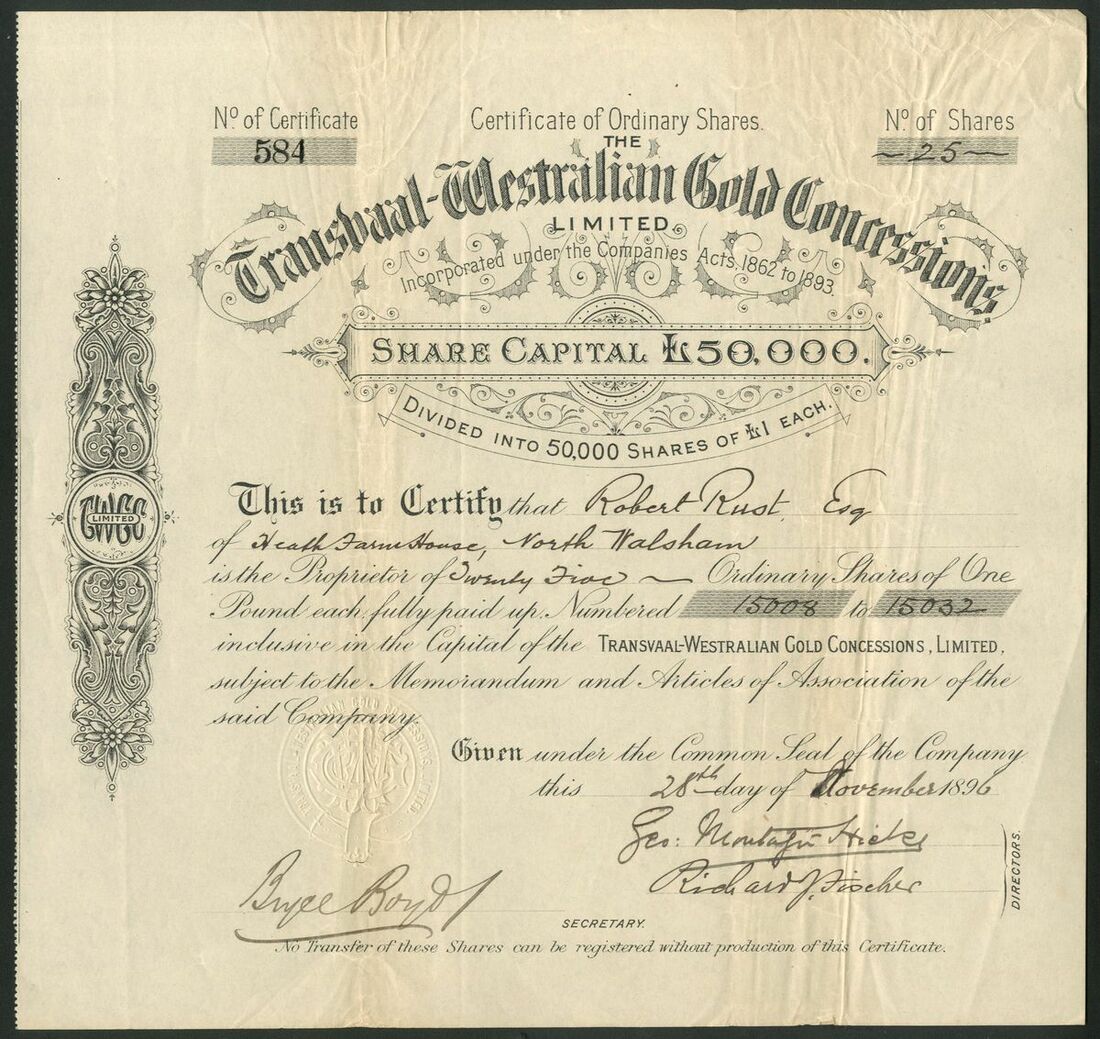 Nº of Certificate
584
Certificate of Ordinary Shares.
Nº of Shares
25
THE
Transvaal-Westralian Gold Concessions
LIMITED
Incorporated under the Companies Acts, 1862 to 1893.
SHARE CAPITAL £50,000.
DIVIDED INTO 50,000 SHARES OF £1 EACH.
TWGC
LIMITED
This is to Certify that Robert Rust, Esq
of Heath Farm House, North Walsham
is the Proprietor of Twenty Five Ordinary Shares of One
Pound each, fully paid up. Numbered 15008 to 15032
inclusive in the Capital of the TRANSVAAL-WESTRALIAN GOLD CONCESSIONS, LIMITED,
subject to the Memorandum and Articles of Association of the
said Company.
Given under the Common Seal of the Company
this 28th day of November 1896
Geo: Montagu Hicks
Richard J. Fischer
DIRECTORS.
Bryce Boyd
SECRETARY.
No Transfer of these Shares can be registered without production of this Certificate.